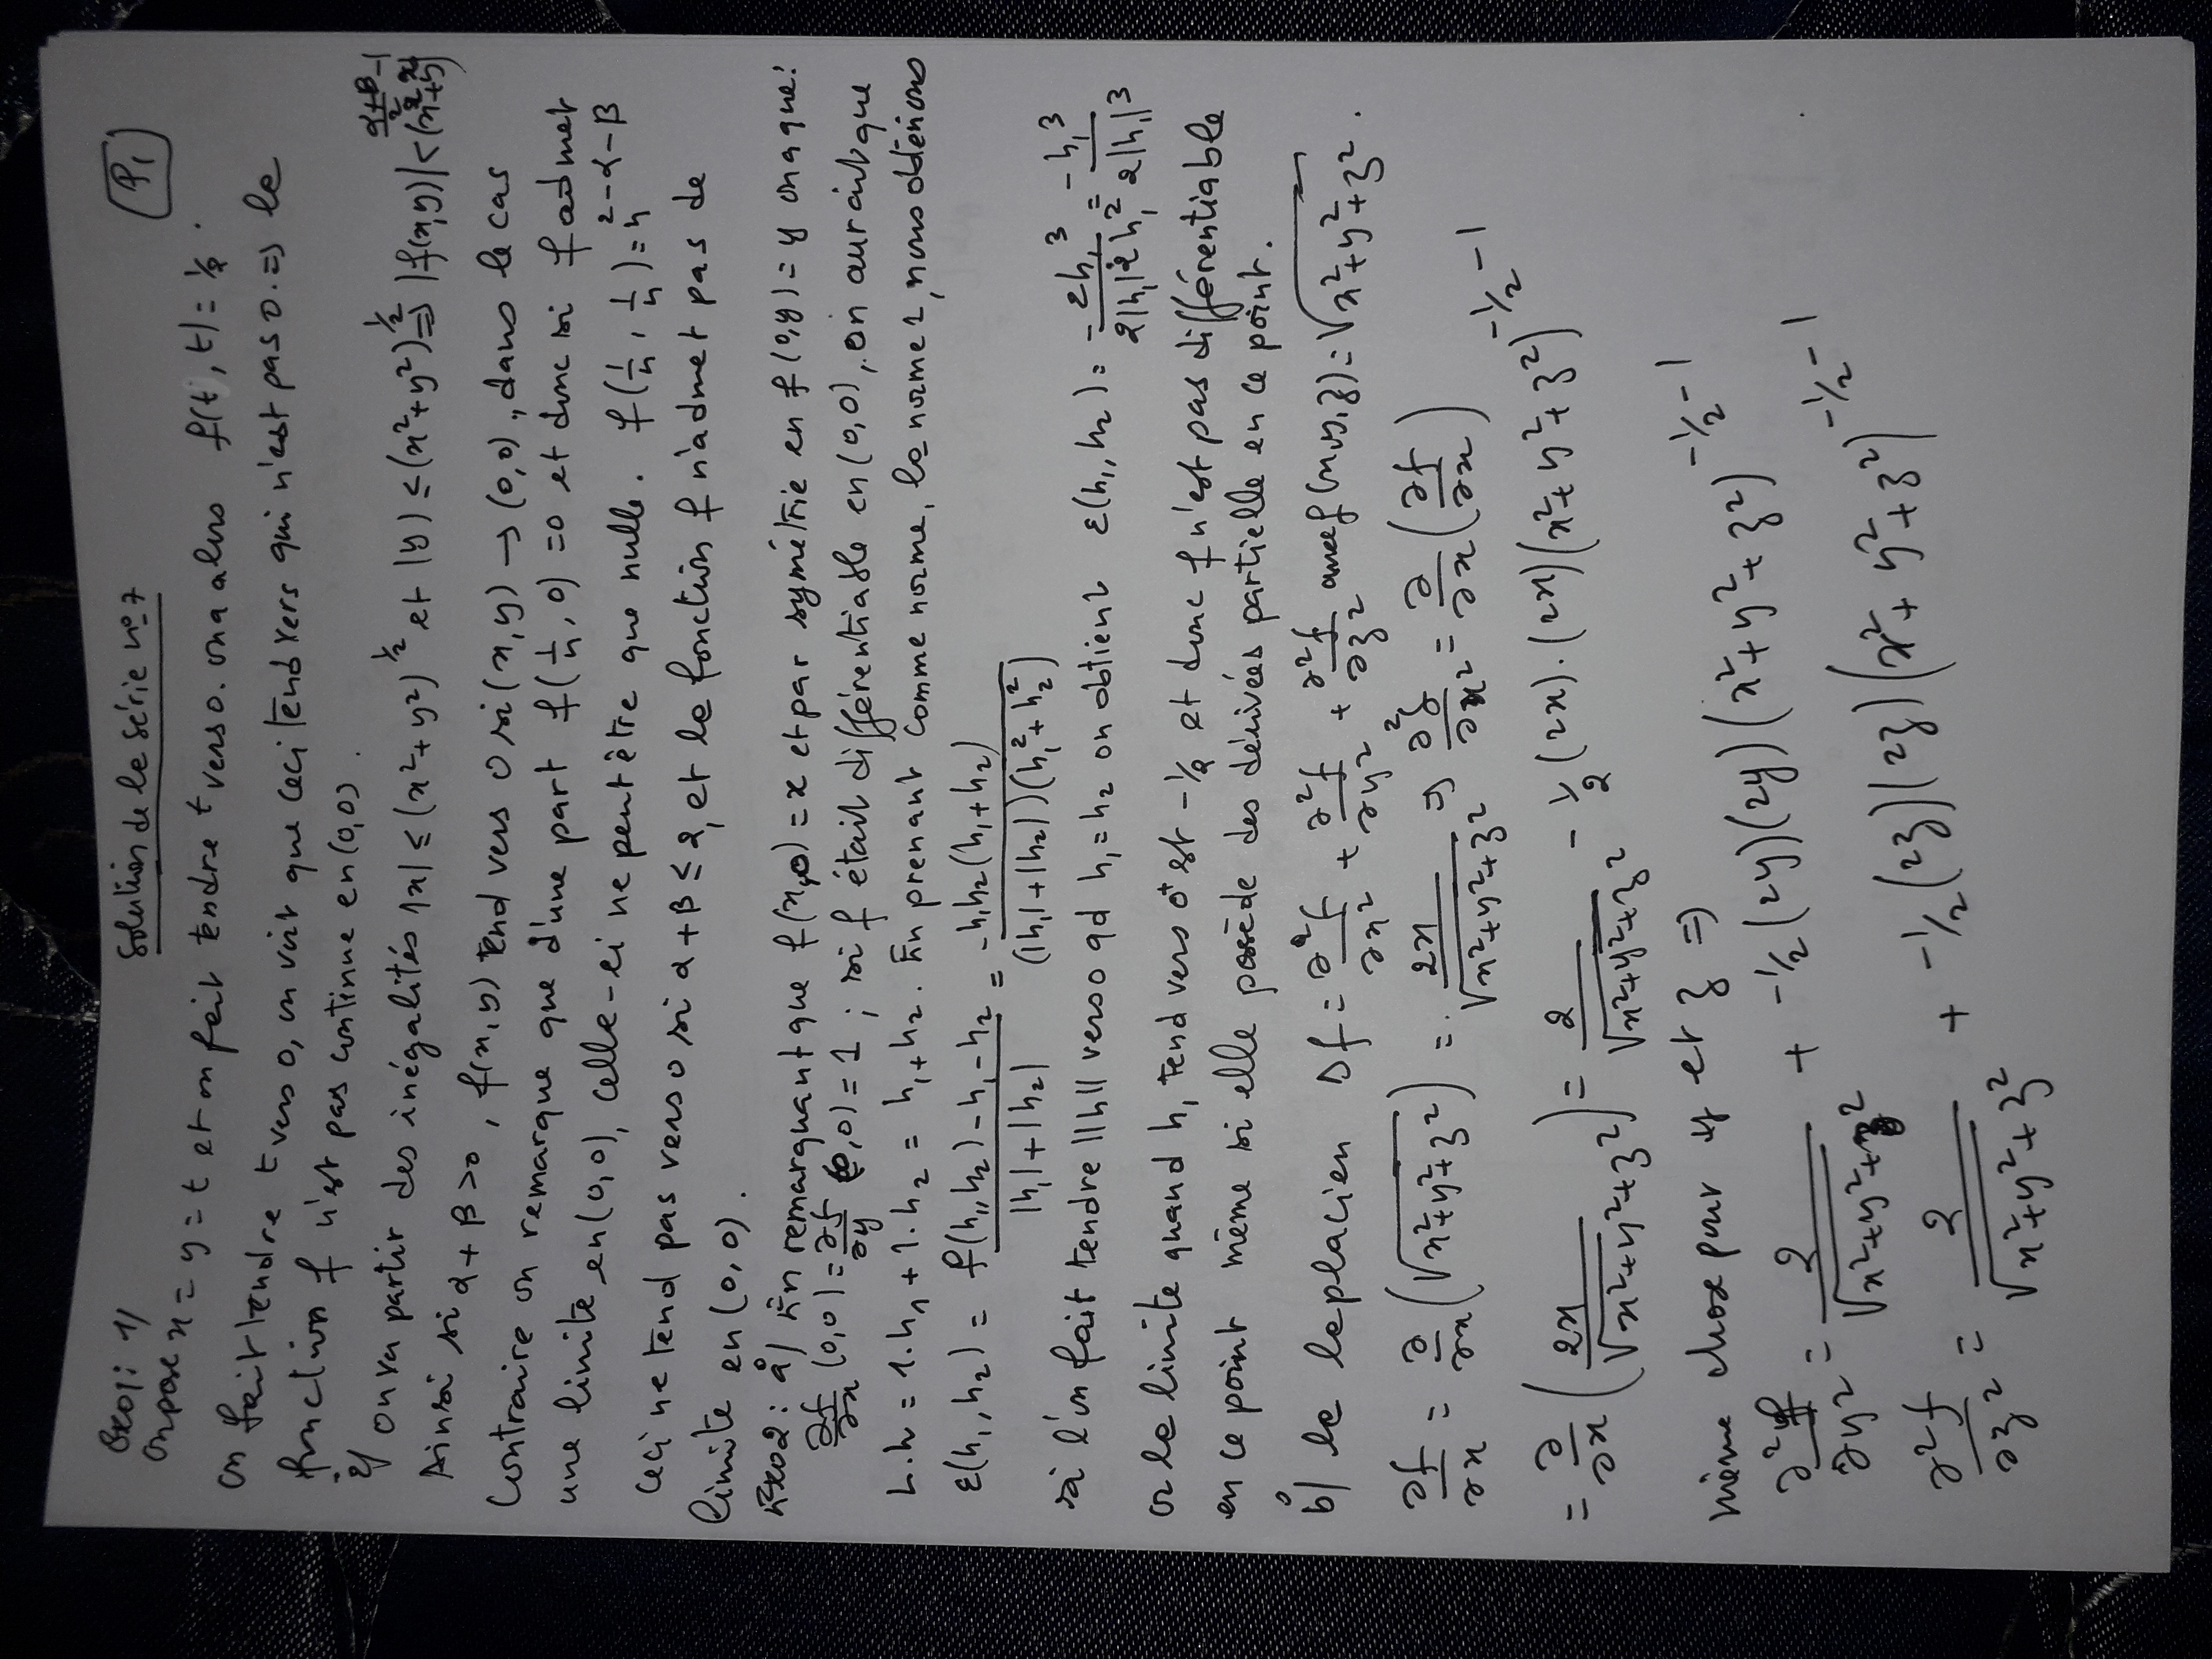 Solution de la série n°7
P1
Exo1: 1/
on pose x = y = t et on fait tendre t vers 0. on a alors f(t,t) = 1/2.
on fait tendre t vers 0, on voit que ceci tend vers qui n'est pas 0. => la
fonction f n'est pas continue en (0,0).
2/ on va partir des inégalités |x| ≤ (x²+y²)^½ et |y| ≤ (x²+y²)^½ => |f(x,y)| < (x²+y²)^((α+β)/2 - 1)
Ainsi si α+β>0, f(x,y) tend vers 0 si (x,y) → (0,0), dans le cas
Contraire on remarque que d'une part f(1/n, 0) = 0 et donc si f admet
une limite en (0,0), celle-ci ne peut être que nulle. f(1/n, 1/n) = n^(2-α-β)
ceci ne tend pas vers 0 si α+β ≤ 2, et la fonction f n'admet pas de
limite en (0,0).
Exo2: a/ En remarquant que f(x,0) = x et par symétrie en f(0,y) = y on a que:
∂f/∂x (0,0) = ∂f/∂y (0,0) = 1 ; si f était différentiable en (0,0), on aurait que
L.h = 1.h₁ + 1.h₂ = h₁+h₂. En prenant comme norme, la norme 1, nous obtenons
ε(h₁,h₂) = (f(h₁,h₂)-h₁-h₂)/(|h₁|+|h₂|) = -h₁h₂(h₁+h₂)/((|h₁|+|h₂|)(h₁²+h₂²))
si l'on fait tendre ||h|| vers 0 qd h₁=h₂ on obtient ε(h₁,h₂) = -2h₁³/(2|h₁|2h₁²) = -h₁³/(2|h₁|³)
or la limite quand h₁ tend vers 0⁺ est -½ et donc f n'est pas différentiable
en ce point même si elle possède des dérivées partielle en ce point.
b/ le laplacien Δf = ∂²f/∂x² + ∂²f/∂y² + ∂²f/∂z² avec f(x,y,z) = √(x²+y²+z²).
∂f/∂x = ∂/∂x (√(x²+y²+z²)) = 2x/√(x²+y²+z²) => ∂²f/∂x² = ∂/∂x (∂f/∂x)
= ∂/∂x (2x/√(x²+y²+z²)) = 2/√(x²+y²+z²) - ½(2x).(2x)(x²+y²+z²)^(-½-1)
même chose pour y et z =>
∂²f/∂y² = 2/√(x²+y²+z²) + -½(2y)(2y)(x²+y²+z²)^(-½-1)
∂²f/∂z² = 2/√(x²+y²+z²) + -½(2z)(2z)(x²+y²+z²)^(-½-1).